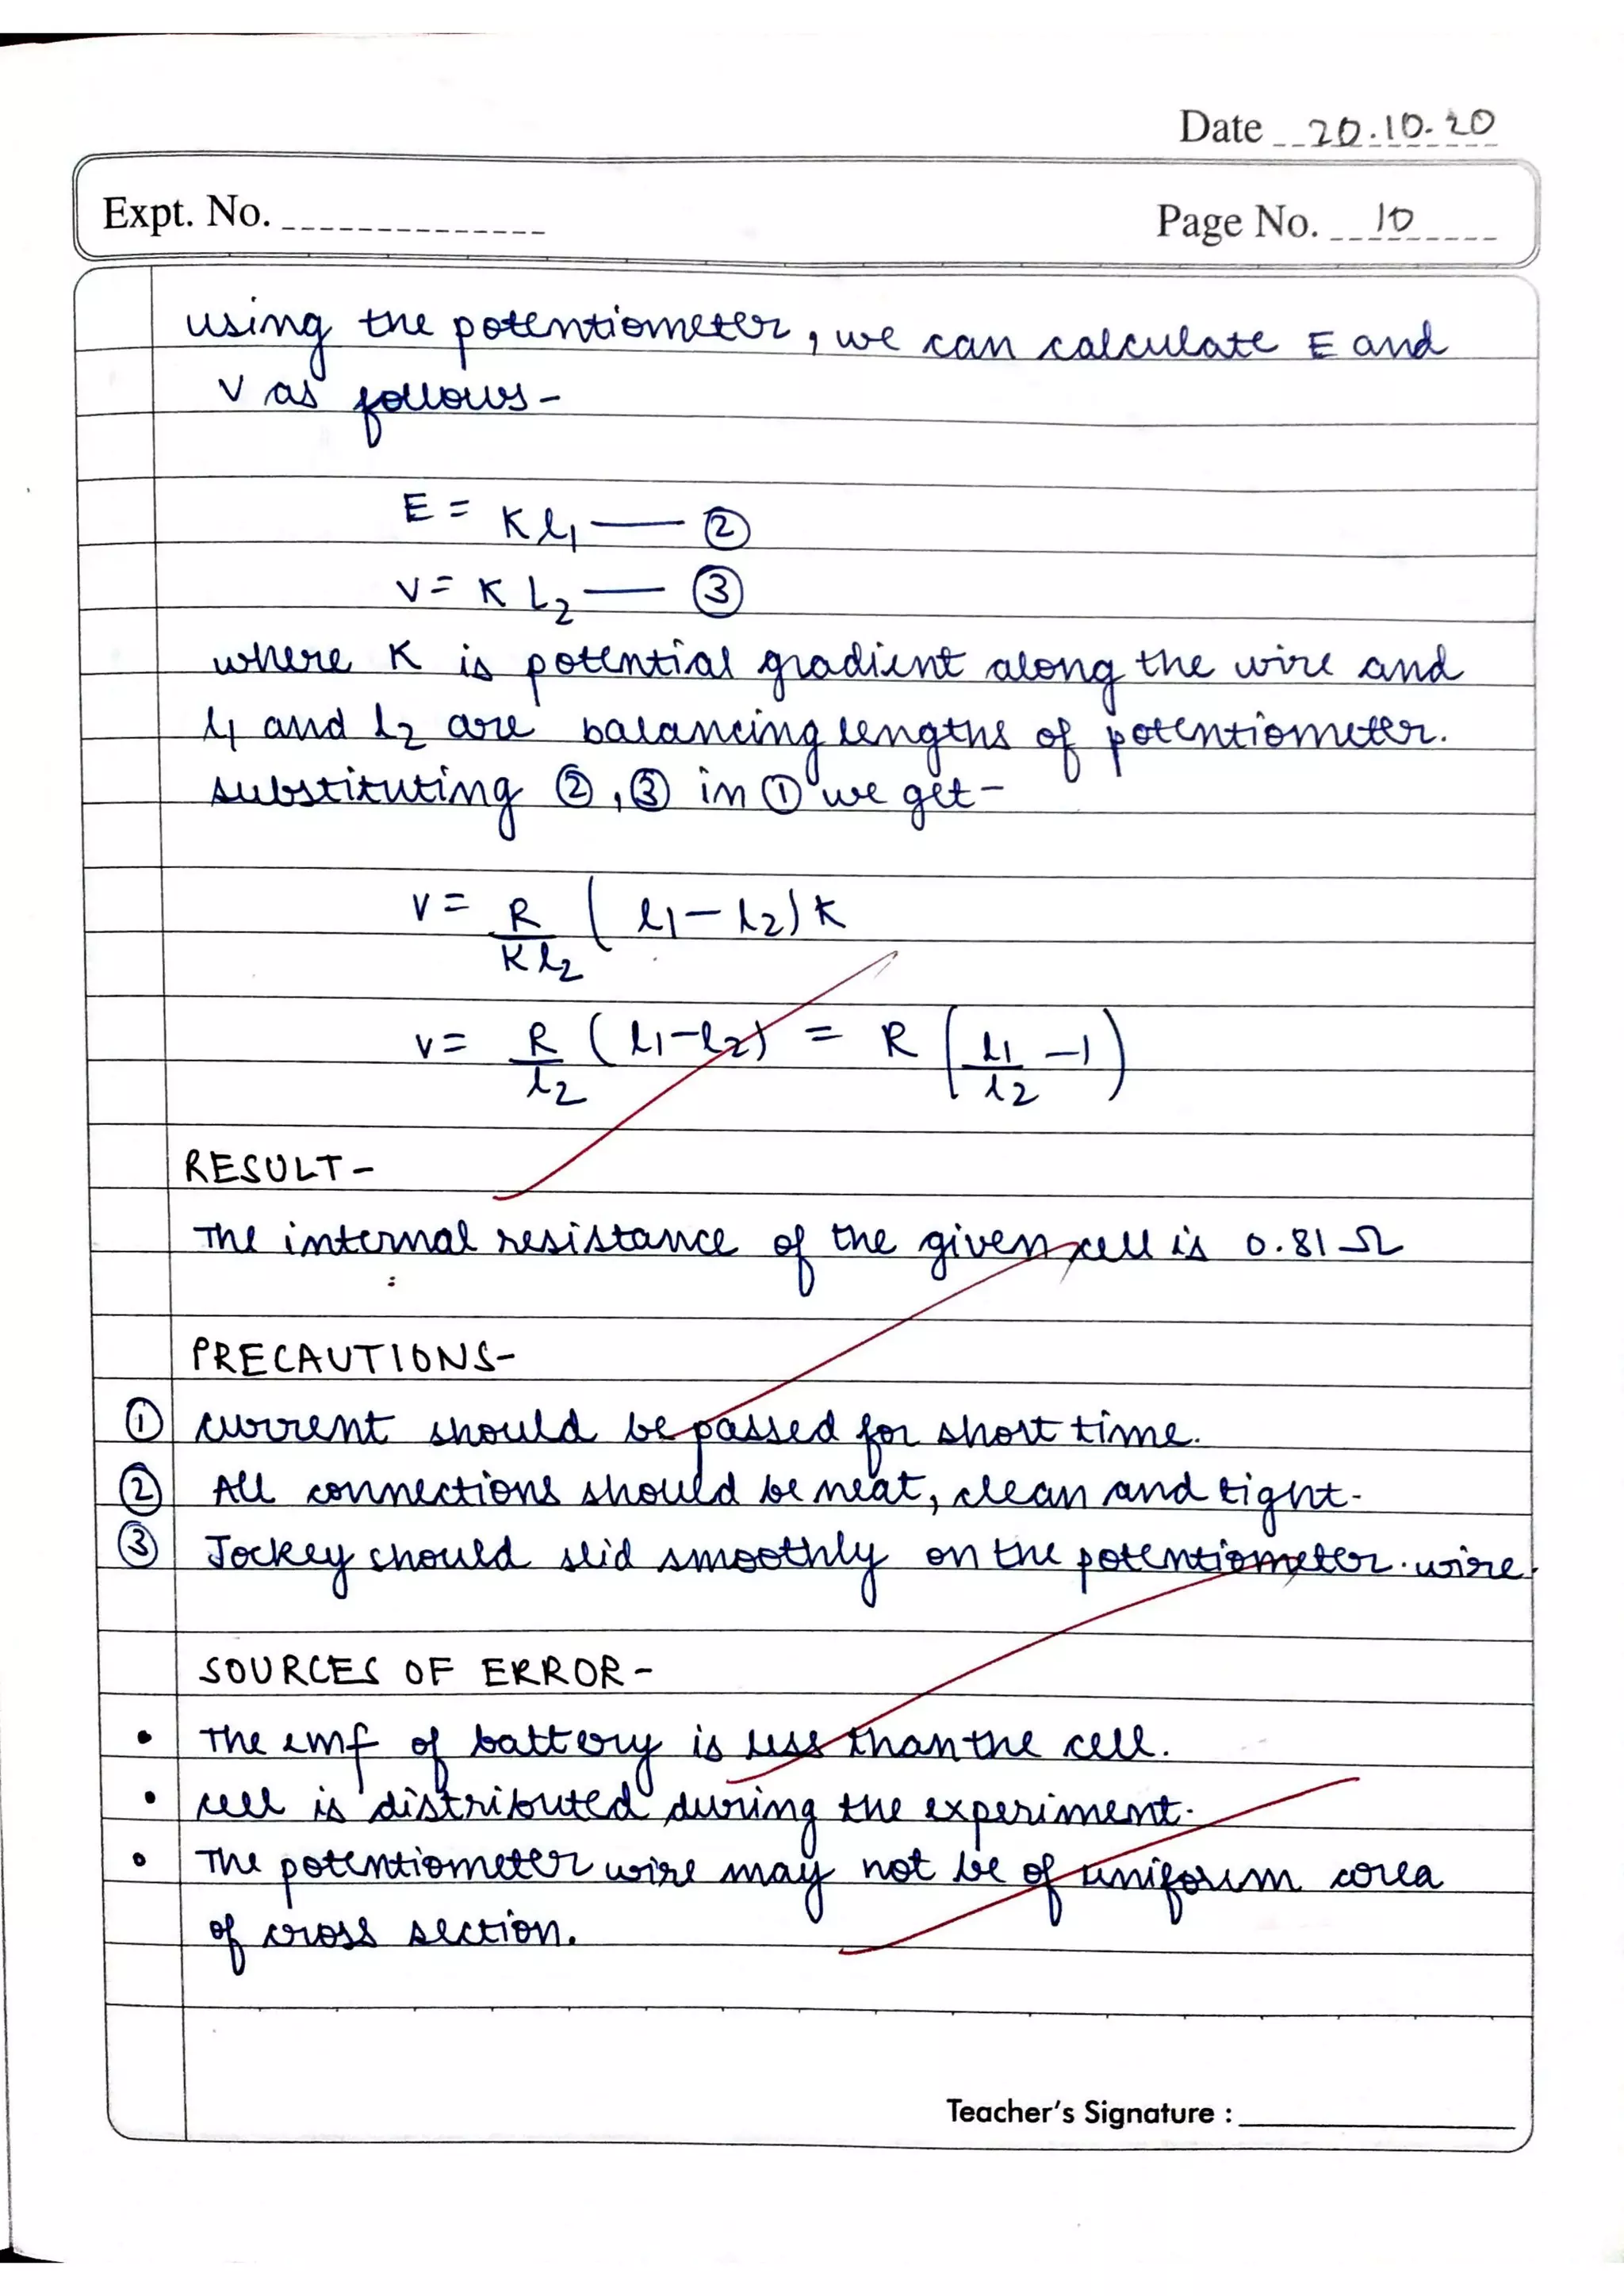 Date 20.10.20
Expt. No.
Page No. 10
using the potentiometer, we can calculate E and
V as follows-
E = Kl1 — ②
V = K L2 — ③
where K is potential gradient along the wire and
l1 and l2 are balancing lengths of potentiometer.
substituting ②, ③ in ① we get-
V = R/Kl2 (l1-l2)K
V = R/l2 (l1-l2) = R (l1/l2 -1)
RESULT-
The internal resistance of the given cell is 0.81 Ω
PRECAUTIONS-
① current should be passed for short time.
② All connections should be neat, clean and tight.
③ Jockey should slid smoothly on the potentiometer. wire.
SOURCES OF ERROR-
• The emf of battery is less than the cell.
• cell is distributed during the experiment.
• The potentiometer wire may not be of uniform area
of cross section.
Teacher's Signature :